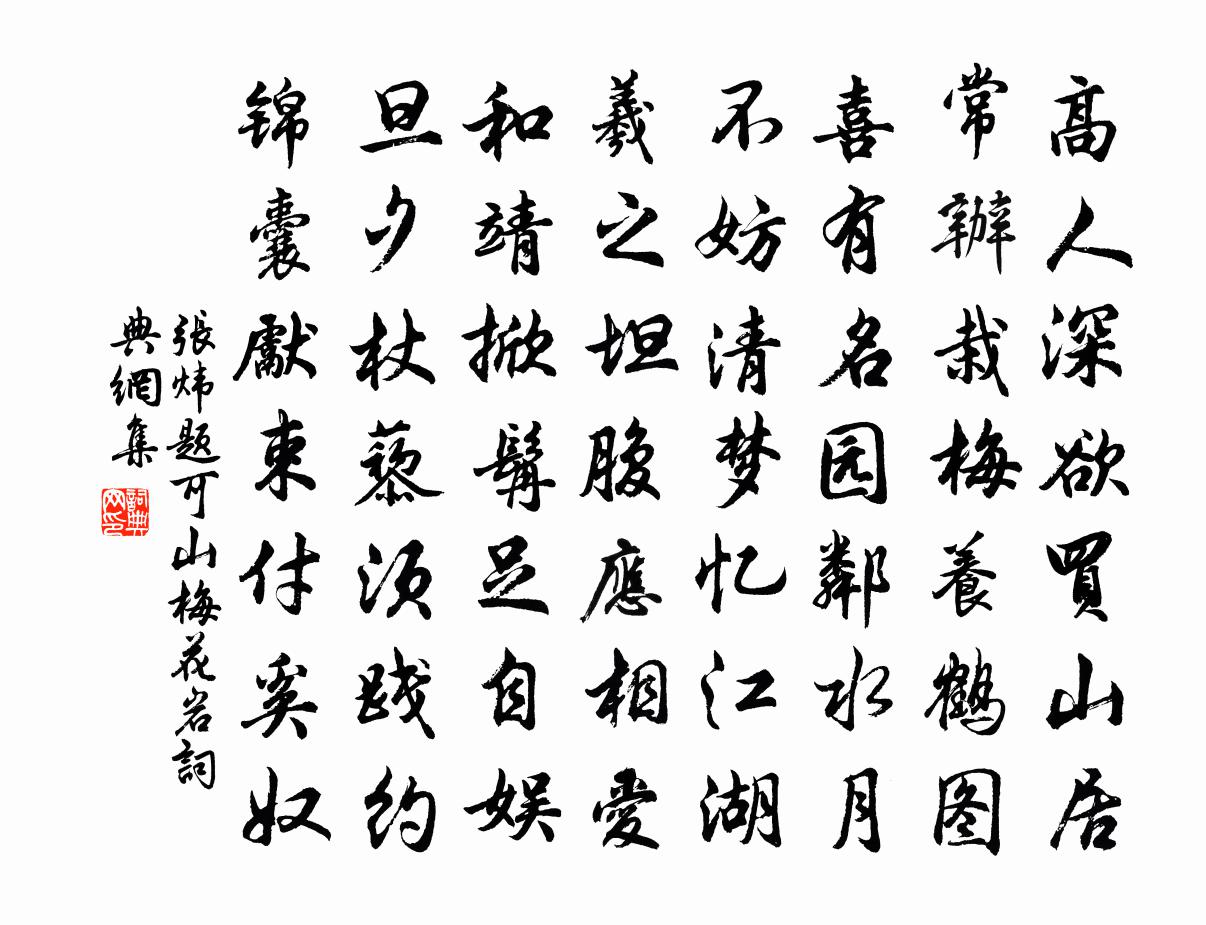 高人深欲買山居
常辦栽梅養鶴图
喜有名园鄰水月
不妨清梦忆江湖
羲之坦腹應相愛
和靖掀髯足自娱
旦夕杖藜須践约
锦囊獻束付奚奴
張炜题可山梅花岩詞
典網集
詞典
网印